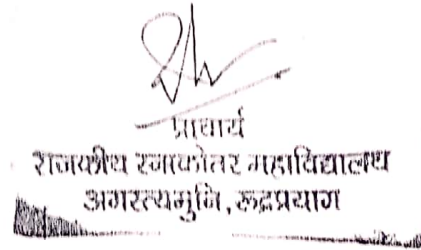 प्राचार्य
राजकीय स्नाकोतर महाविद्यालय
अगस्त्यमुनि, रूद्रप्रयाग